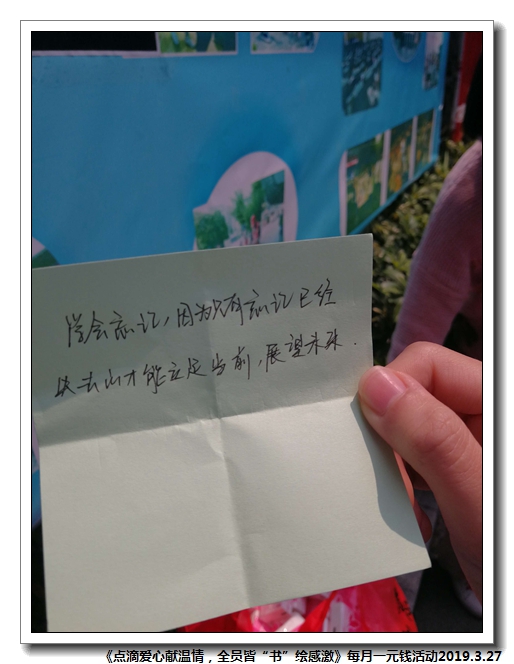 学会忘记，因为只有忘记已经
失去的才能立足当前，展望未来．
《点滴爱心献温情，全员皆“书”绘感激》每月一元钱活动2019.3.27